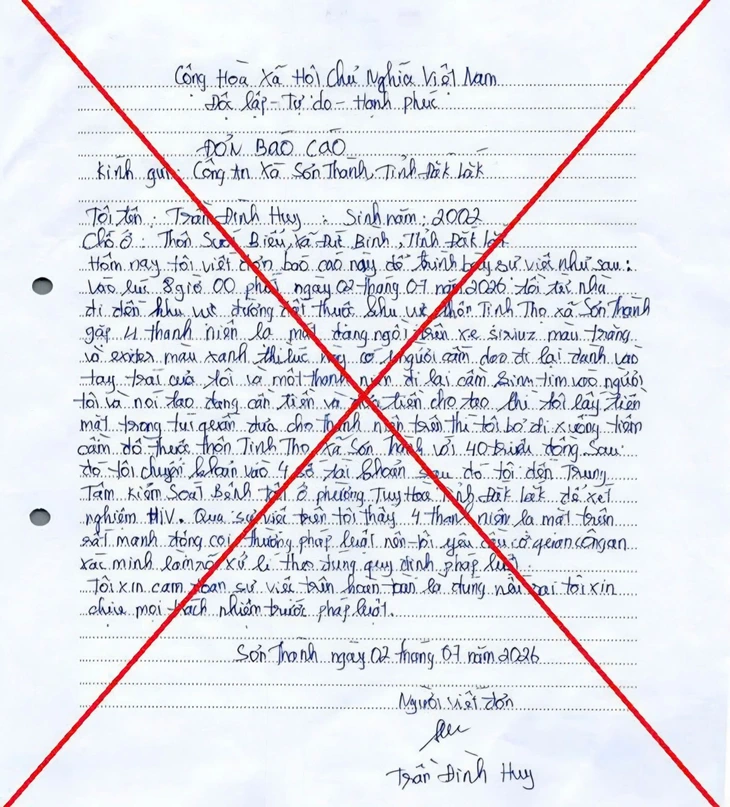 Cộng Hoà Xã Hội Chủ Nghĩa Việt Nam
Độc lập - Tự do - Hạnh phúc
ĐƠN BÁO CÁO
Kính gửi: Công An Xã Sơn Thành, Tỉnh Đắk Lắk
Tôi tên: Trần Đình Huy : Sinh năm: 2002
Chỗ ở: Thôn Suối Biểu, xã Đức Bình, Tỉnh Đắk Lắk
Hôm nay tôi viết đơn báo cáo này để trình bày sự việt như sau:
Vào lúc 8 giờ 00 phút ngày 02 tháng 07 năm 2026 tôi từ nhà
đi đến khu vực đường thuộc khu vực thôn Tịnh Thọ xã Sơn Thành
gặp 4 thanh niên lạ mặt đang ngồi trên xe siriuz màu trắng
và exxiter màu xanh thì lúc này có 1 người cầm dao đi lại đánh vào
tay trái của tôi và một thanh niên đi lại cầm sinh tim vào người
tôi và nói tao đang cần tiền và đưa tiền cho tao thì tôi lấy tiền
mặt trong túi quần đưa cho thanh niên trên thì tôi bỏ đi xuống tiệm
cầm đồ thuộc thôn Tịnh Thọ xã Sơn Thành với 40 triệu đồng. Sau
đó tôi chuyển khoản vào 4 số tài khoản sau đó tôi đến Trung
Tâm Kiểm Soát Bệnh tật ở phường Tuy Hoà Tỉnh Đắk Lắk để xét
nghiệm HIV. Qua sự việt trên tôi thấy 4 thanh niên lạ mặt trên
rất manh động coi thường pháp luật nên tôi yêu cầu cơ quan công an
xác minh làm rõ xử lí theo đúng quy định pháp luật.
Tôi xin cam đoan sự việt trên hoàn toàn là đúng nếu sai tôi xin
chịu mọi trách nhiệm trước pháp luật.
Sơn Thành ngày 02 tháng 07 năm 2026
Người viết đơn
Trần Đình Huy